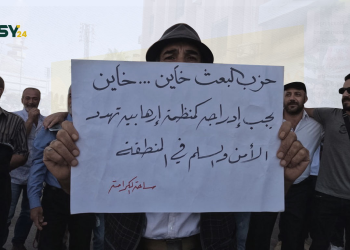 SY24
حزب البعث خاين ... خاين
يجب إدراجه كمنظمة إرهابية تهدد
الأمن والسلم في المنطقة
ساحة الكرامة